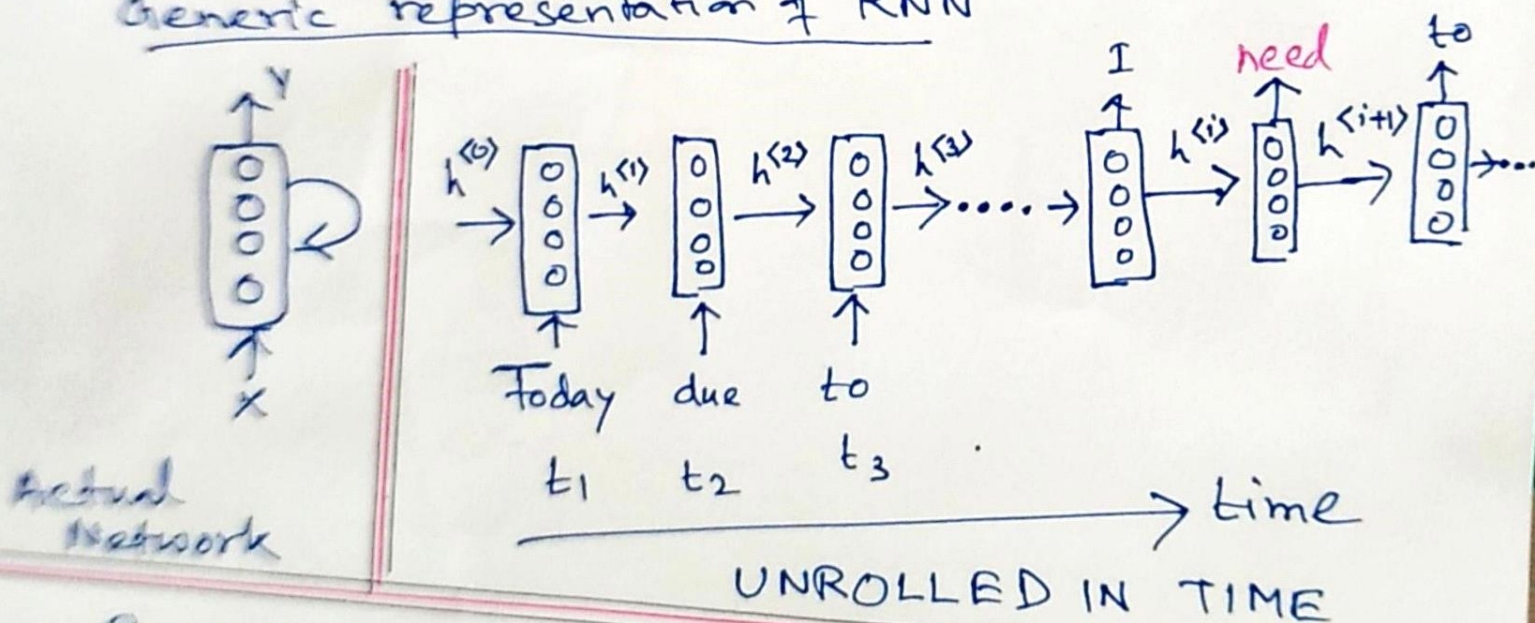 Generic representation of RNN
Y
X
Actual
Network
h<0>
h<1>
h<2>
h<3>
I
h<i>
need
h<i+1>
to
Today due to
t1 t2 t3
time
UNROLLED IN TIME